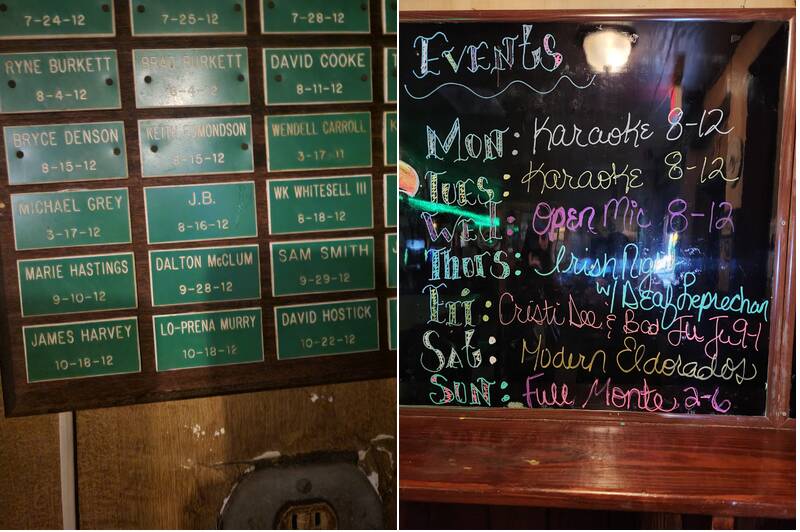 7-24-12
7-25-12
7-28-12
RYNE BURKETT
8-4-12
BRAD BURKETT
8-4-12
DAVID COOKE
8-11-12
BRYCE DENSON
8-15-12
KEITH EDMONDSON
8-15-12
WENDELL CARROLL
3-17-11
MICHAEL GREY
3-17-12
J.B.
8-16-12
WK WHITESELL III
8-18-12
MARIE HASTINGS
9-10-12
DALTON McCLUM
9-28-12
SAM SMITH
9-29-12
JAMES HARVEY
10-18-12
LO-PRENA MURRY
10-18-12
DAVID HOSTICK
10-22-12
EVENTS
MON: Karaoke 8-12
TUES: Karaoke 8-12
WED: Open Mic 8-12
THURS: Irish Night
w/ Deaf Leprechan
FRI: Cristi Dee & Bad Ju Ju 9-1
SAT: Modern Eldorados
SUN: Full Monte 2-6